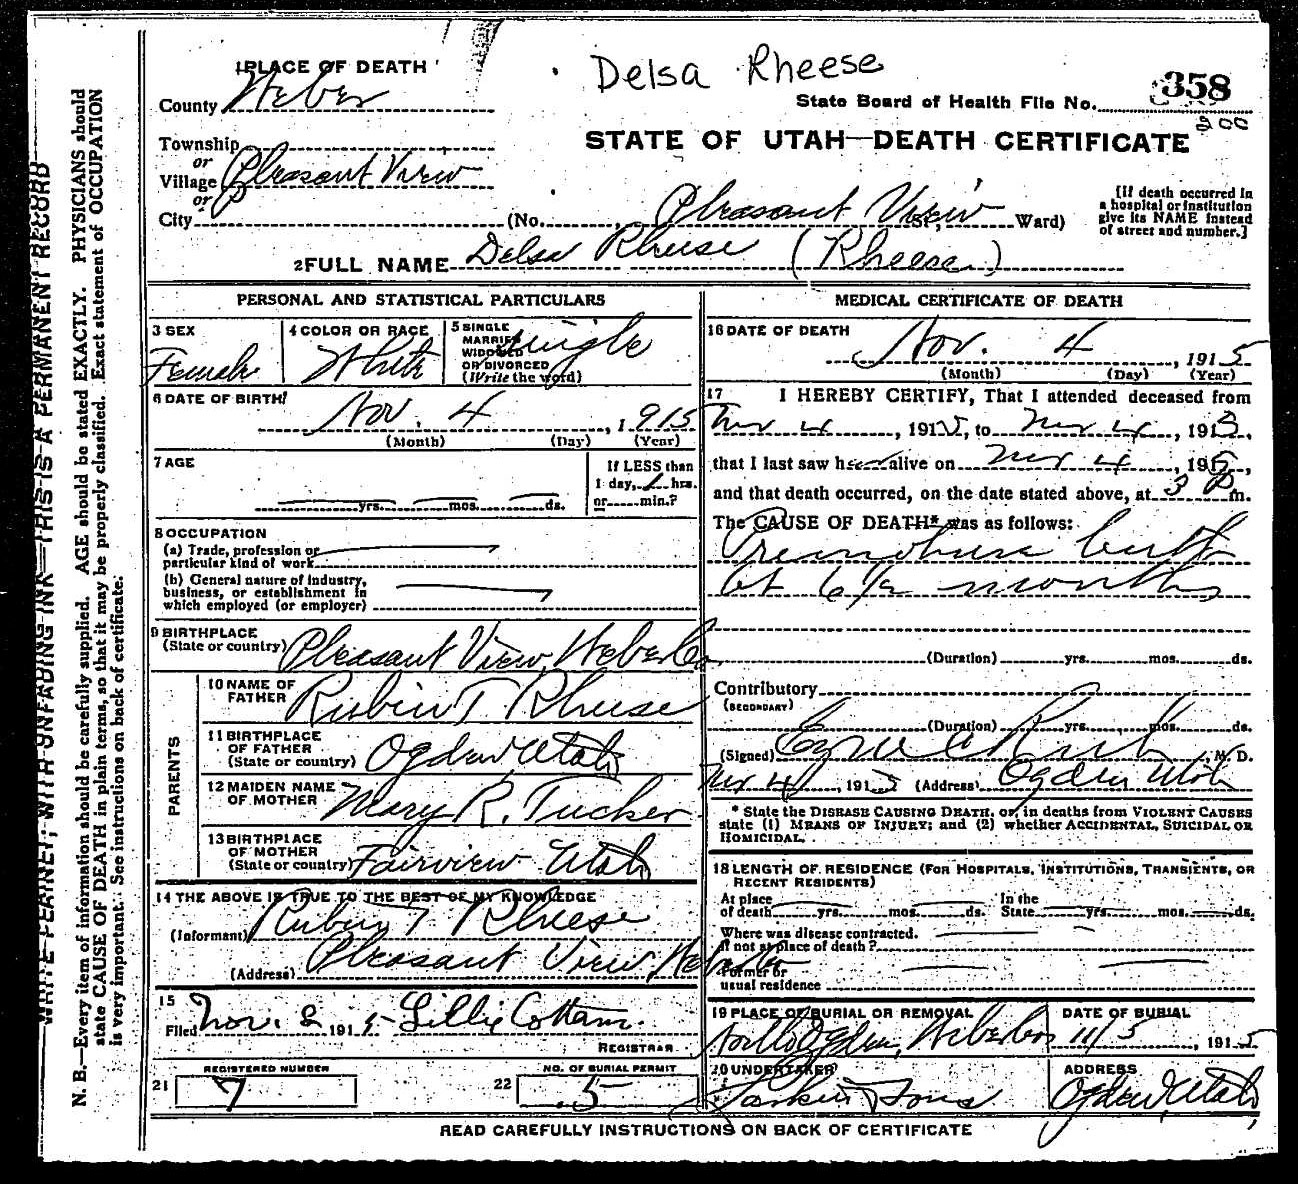 Delsa Rheese
1 PLACE OF DEATH
County Weber
358
State Board of Health File No.
STATE OF UTAH—DEATH CERTIFICATE
Township
or
Village Pleasant View
or
City (No. Pleasant View St., Ward)
[If death occurred in
a hospital or institution
give its NAME instead
of street and number.]
2 FULL NAME Delsa Rheese (Rheese)
PERSONAL AND STATISTICAL PARTICULARS
3 SEX
Female
4 COLOR OR RACE
White
5 SINGLE
MARRIED
WIDOWED
OR DIVORCED
(Write the word)
Single
6 DATE OF BIRTH
Nov. 4, 1915
(Month) (Day) (Year)
7 AGE
yrs. mos. ds.
If LESS than
1 day, 1 hrs.
or min.?
8 OCCUPATION
(a) Trade, profession or
particular kind of work
(b) General nature of industry,
business, or establishment in
which employed (or employer)
9 BIRTHPLACE
(State or country) Pleasant View, Weber Co
PARENTS
10 NAME OF
FATHER Rubin T Rheese
11 BIRTHPLACE
OF FATHER
(State or country) Ogden Utah
12 MAIDEN NAME
OF MOTHER Mary R. Tucker
13 BIRTHPLACE
OF MOTHER
(State or country) Fairview Utah
14 THE ABOVE IS TRUE TO THE BEST OF MY KNOWLEDGE
(Informant) Rubin T Rheese
(Address) Pleasant View, Weber Co
15
Filed Nov. 191 Lillie Cottam.
REGISTRAR
REGISTERED NUMBER
21 7
NO. OF BURIAL PERMIT
22 5
MEDICAL CERTIFICATE OF DEATH
16 DATE OF DEATH
Nov. 4, 1915
(Month) (Day) (Year)
17 I HEREBY CERTIFY, That I attended deceased from
Nov 4, 1915, to Nov 4, 191
that I last saw her alive on Nov 4, 1915,
and that death occurred, on the date stated above, at 3 P m.
The CAUSE OF DEATH* was as follows:
Premature birth
at 6 1/2 months
(Duration) yrs. mos. ds.
Contributory
(SECONDARY)
(Duration) yrs. mos. ds.
(Signed) M. D.
Nov 4, 1915 (Address) Ogden Utah
* State the DISEASE CAUSING DEATH, or, in deaths from VIOLENT CAUSES
state (1) MEANS OF INJURY; and (2) whether ACCIDENTAL, SUICIDAL OR
HOMICIDAL.
18 LENGTH OF RESIDENCE (FOR HOSPITALS, INSTITUTIONS, TRANSIENTS, OR
RECENT RESIDENTS)
At place
of death yrs. mos. ds. In the
State yrs. mos. ds.
Where was disease contracted.
if not at place of death?
Former or
usual residence
19 PLACE OF BURIAL OR REMOVAL
North Ogden, Weber Co
DATE OF BURIAL
11/5, 1915
20 UNDERTAKER
Larkin & Sons
ADDRESS
Ogden, Utah,
READ CAREFULLY INSTRUCTIONS ON BACK OF CERTIFICATE
WRITE PLAINLY, WITH UNFADING INK—THIS IS A PERMANENT RECORD
N. B.—Every item of information should be carefully supplied. AGE should be stated EXACTLY. PHYSICIANS should
state CAUSE OF DEATH in plain terms, so that it may be properly classified. Exact statement of OCCUPATION
is very important. See instructions on back of certificate.